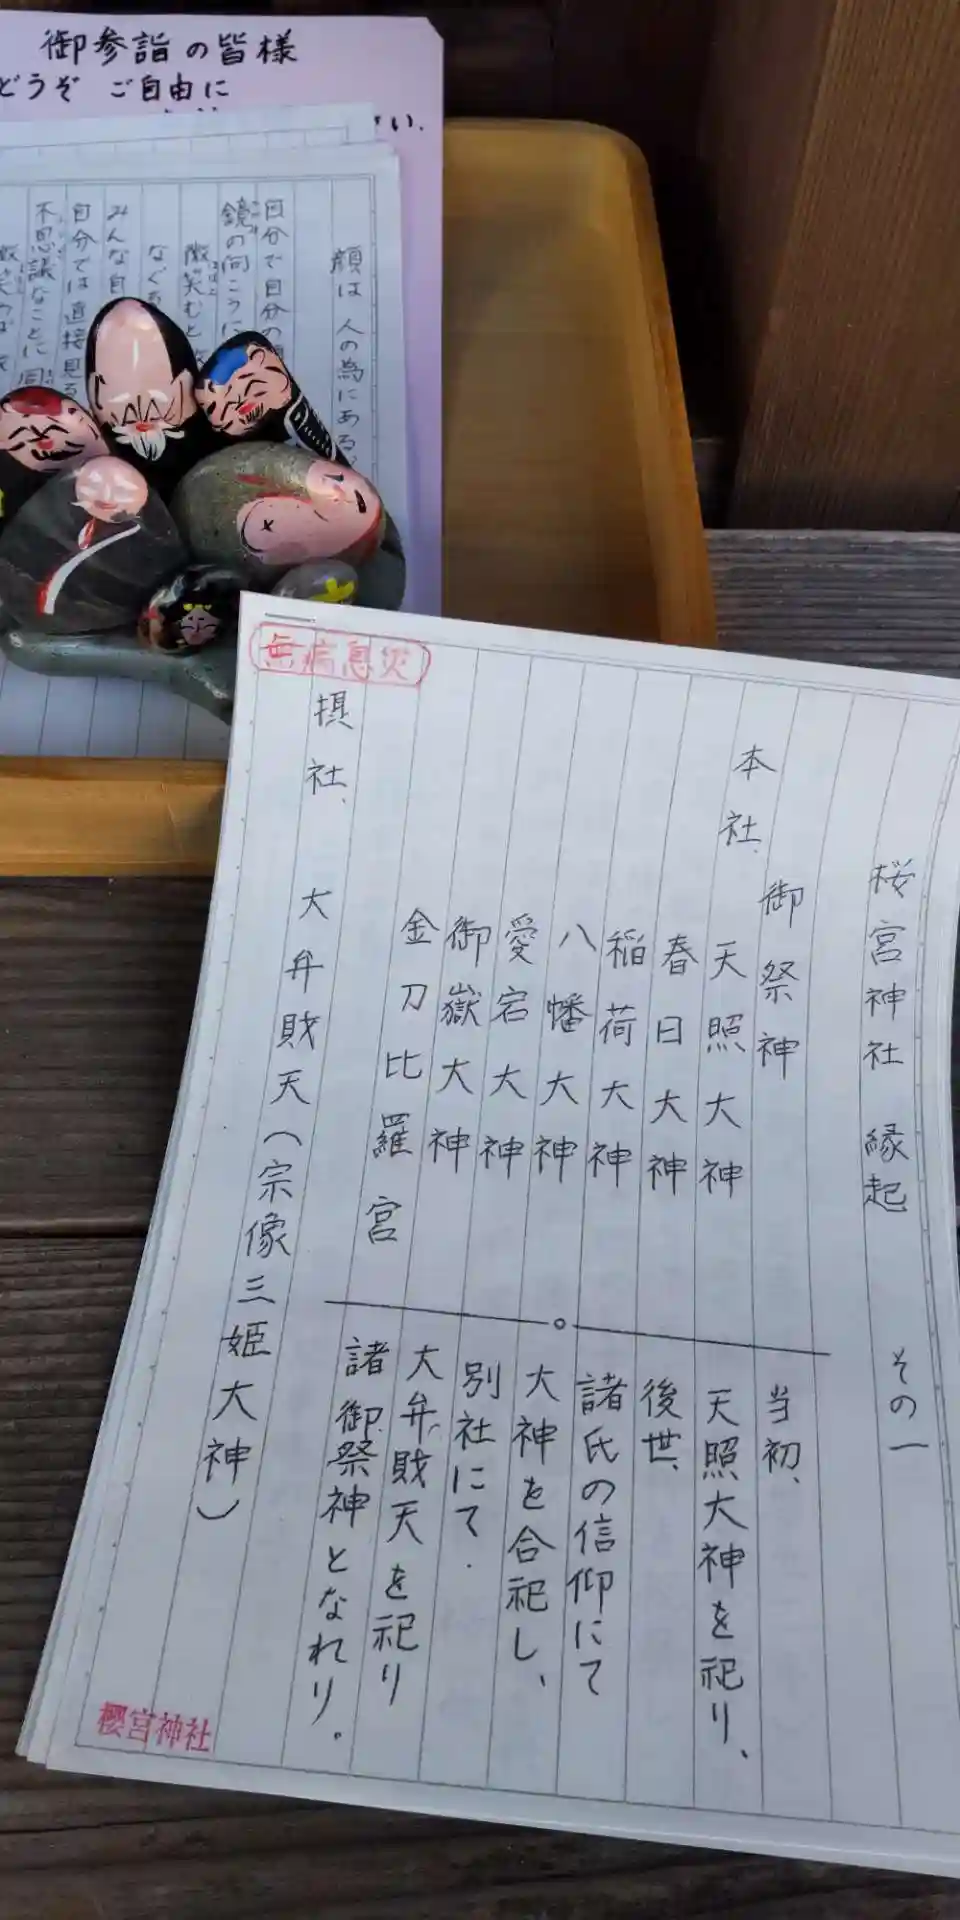 御参詣の皆様
どうぞ ご自由に
さい。
顔は 人の為にある。
自分で自分の
鏡の向こうに
微笑むと
なぐ
みんな自
自分では直接見る
不思議なことに同
微笑めば
無病息災
桜宮神社 縁起 その一
本社、御祭神
天照大神
春日大神
稲荷大神
八幡大神
愛宕大神
御嶽大神
金刀比羅宮
摂社、大弁財天(宗像三姫大神)
当初、
天照大神を祀り、
後世、
諸氏の信仰にて
大神を合祀し、
別社にて、
大弁財天を祀り
諸御祭神となれり。
櫻宮神社